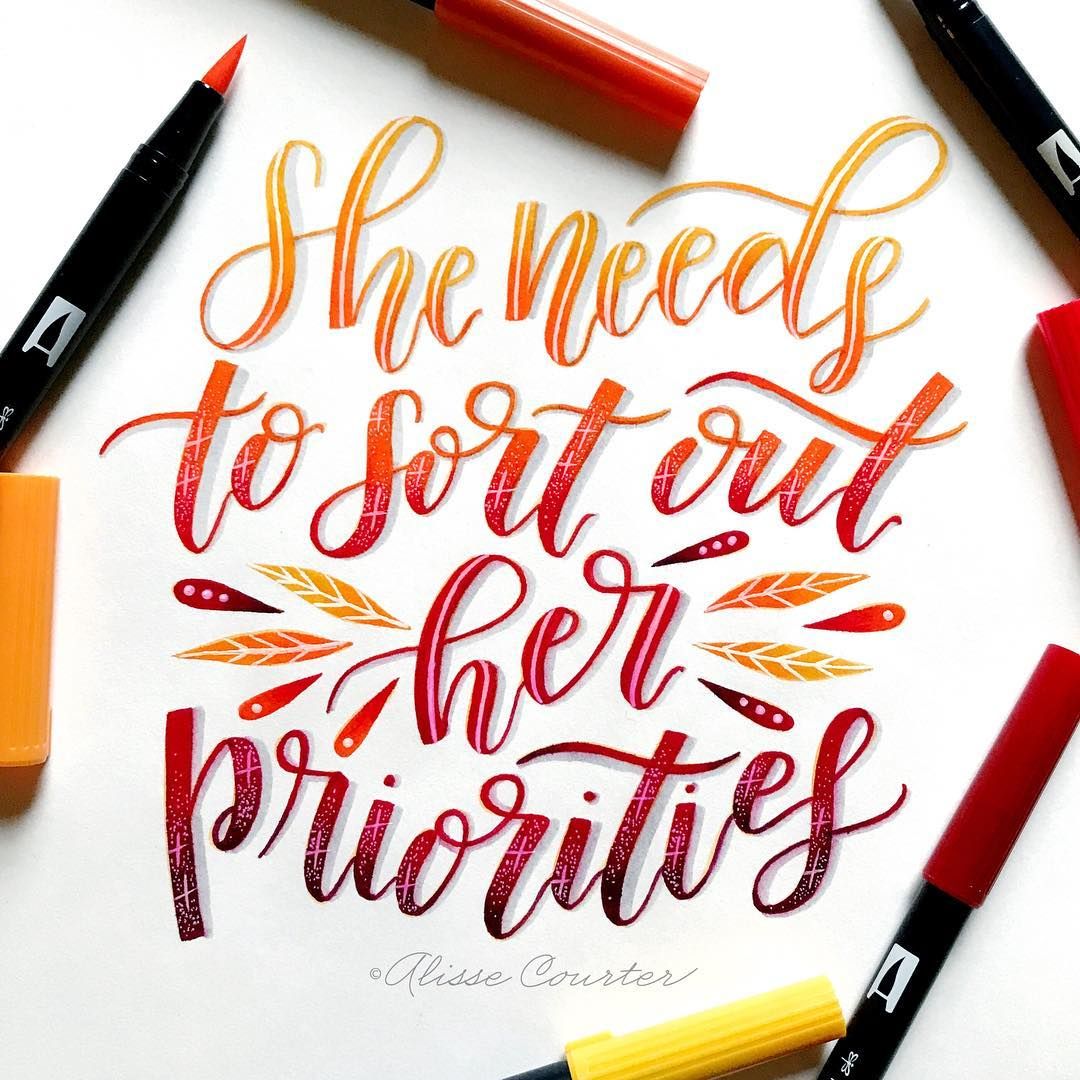 She needs
to sort out
her
priorities
©Alisse Courter